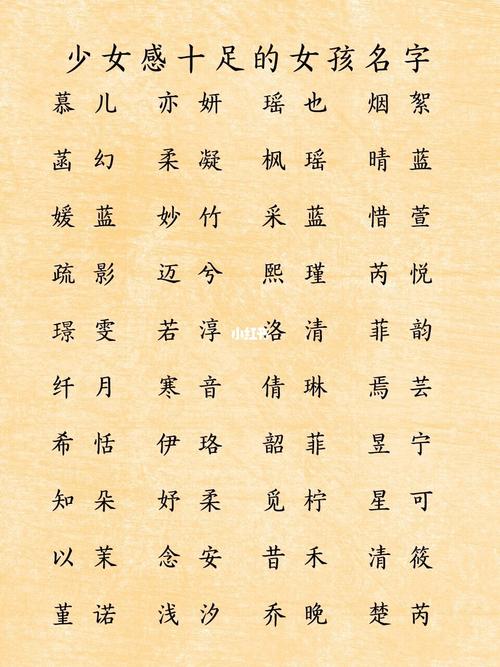 少女感十足的女孩名字
慕儿 亦妍 瑶也 烟絮
菡幻 柔凝 枫瑶 晴蓝
媛蓝 妙竹 采蓝 惜萱
疏影 迈兮 熙瑾 芮悦
璟雯 若淳 洛清 菲韵
纤月 寒音 倩琳 焉芸
希恬 伊珞 韶菲 昱宁
知朵 妤柔 觅柠 星可
以茉 念安 昔禾 清筱
堇诺 浅汐 乔晚 楚芮
小红书